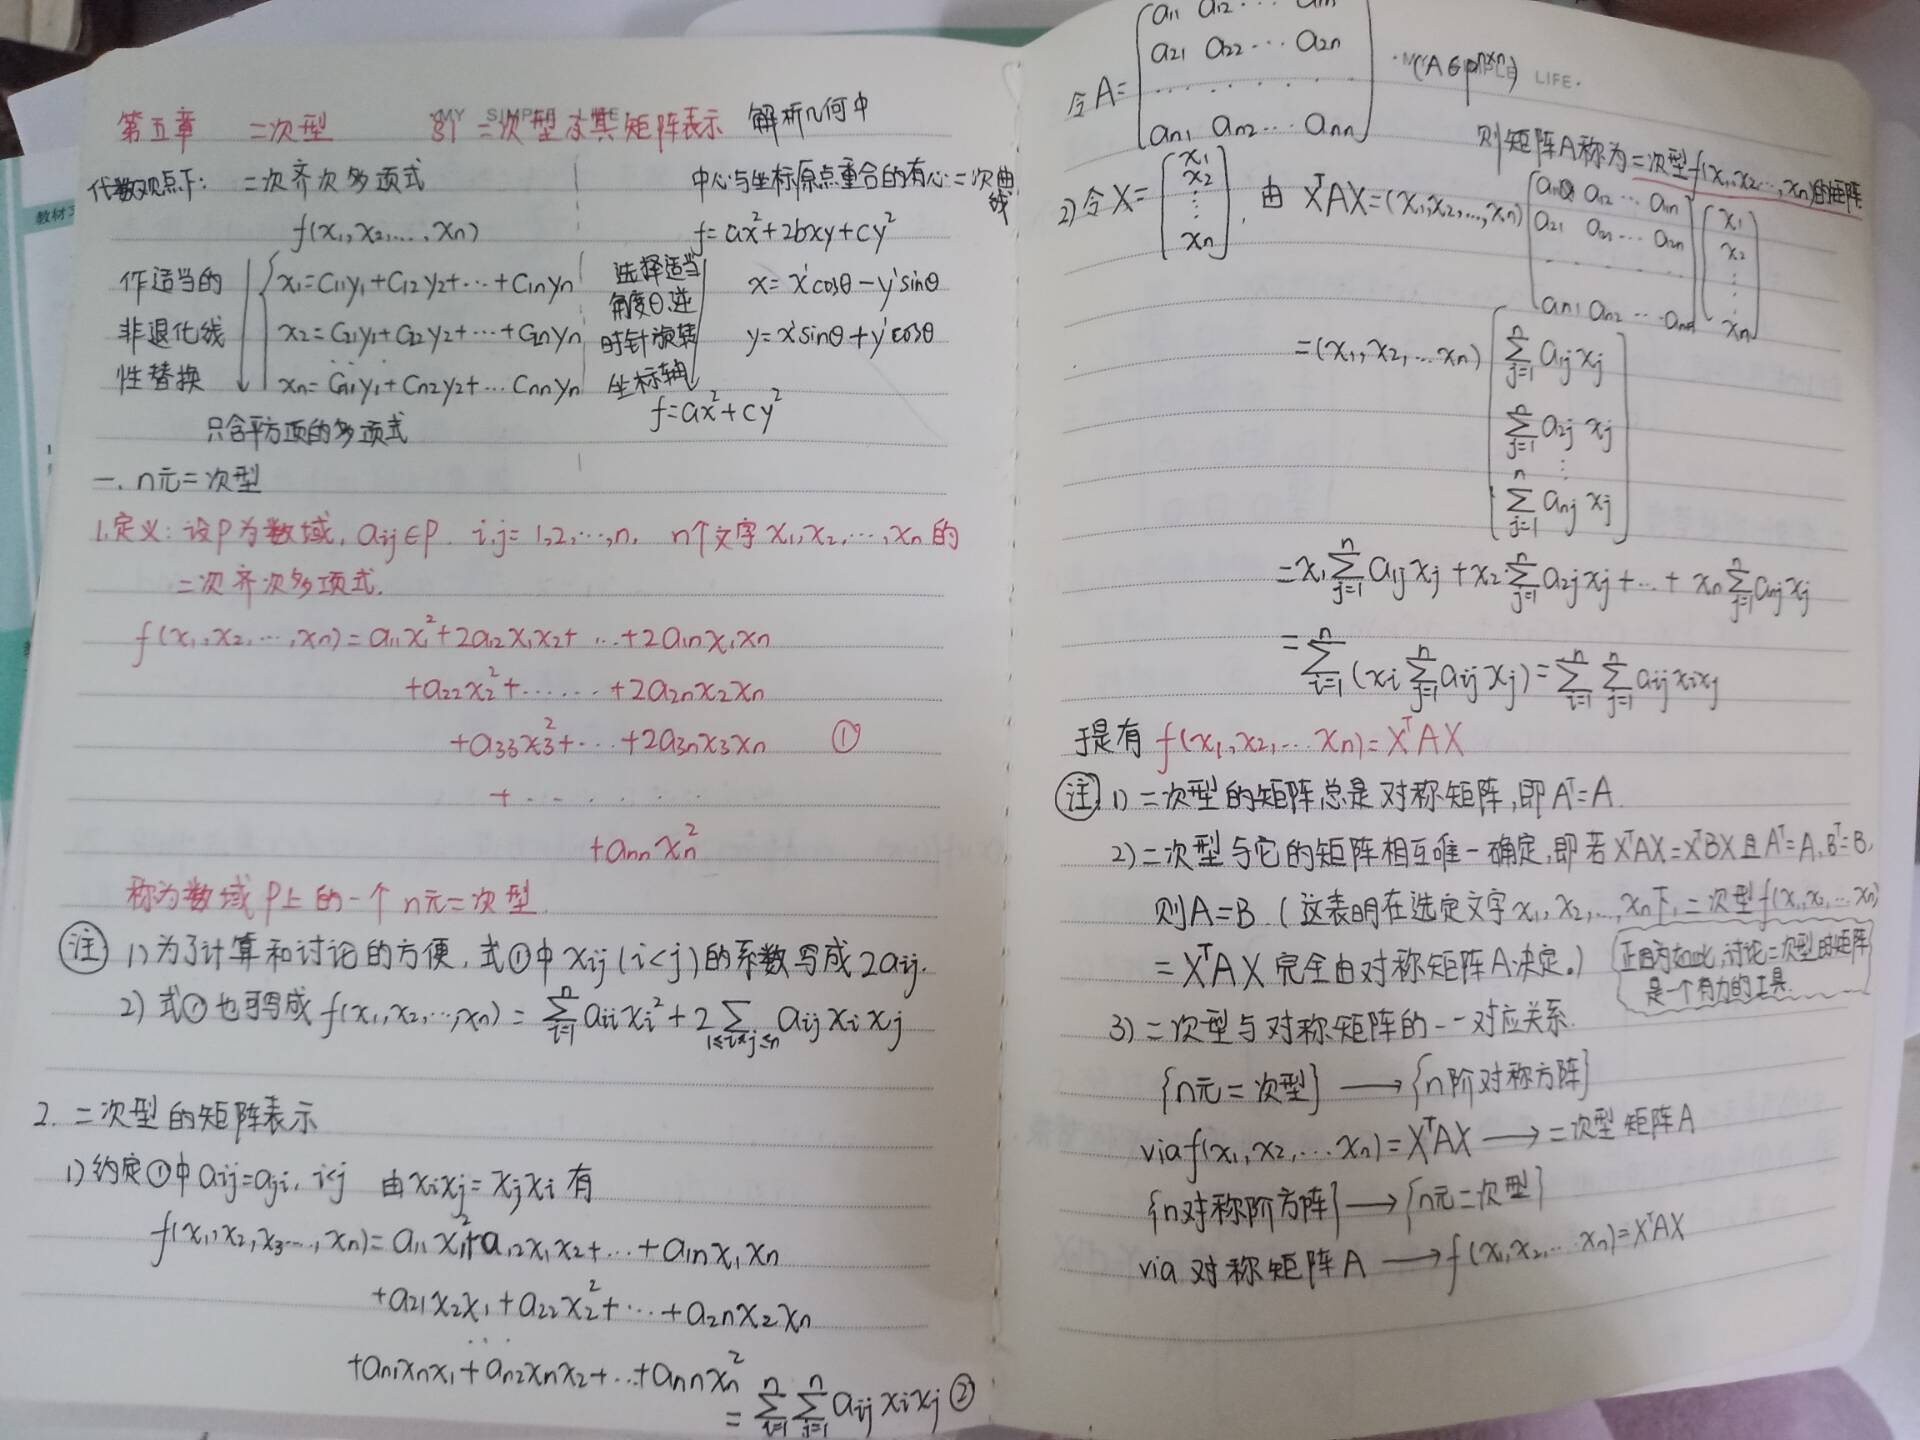 第五章 二次型 §1 二次型及其矩阵表示 解析几何中
代数观点下: 二次齐次多项式 中心与坐标原点重合的有心二次曲线
f(x₁,x₂,…,xₙ) f=ax²+2bxy+cy²
作适当的 x₁=C₁₁y₁+C₁₂y₂+⋯+C₁ₙyₙ 选择适当 x=x'cosθ-y'sinθ
角度θ,逆
非退化线 x₂=C₂₁y₁+C₂₂y₂+⋯+C₂ₙyₙ 时针旋转 y=x'sinθ+y'cosθ
性替换 xₙ=Cₙ₁y₁+Cₙ₂y₂+⋯Cₙₙyₙ 坐标轴
f=ax²+cy²
只含平方项的多项式
一. n元二次型
1.定义:设P为数域, aᵢⱼ∈P. i,j=1,2,…,n, n个文字x₁,x₂,…,xₙ的
二次齐次多项式.
f(x₁,x₂,…,xₙ)=a₁₁x₁²+2a₁₂x₁x₂+…+2a₁ₙx₁xₙ
+a₂₂x₂²+……+2a₂ₙx₂xₙ
+a₃₃x₃²+…+2a₃ₙx₃xₙ ①
+ . . . . .
+aₙₙxₙ²
称为数域P上的一个n元二次型.
注 1)为了计算和讨论的方便,式①中xᵢⱼ(i<j)的系数写成2aᵢⱼ.
2) 式①也可写成f(x₁,x₂,…,xₙ)=∑ⁿᵢ₌₁aᵢᵢxᵢ²+2∑₁≤ᵢ<ⱼ≤ₙaᵢⱼxᵢxⱼ
2. 二次型的矩阵表示
1)约定①中aᵢⱼ=aⱼᵢ, i<j 由xᵢxⱼ=xⱼxᵢ有
f(x₁,x₂,x₃…,xₙ)=a₁₁x₁²+a₁₂x₁x₂+…+a₁ₙx₁xₙ
+a₂₁x₂x₁+a₂₂x₂²+…+a₂ₙx₂xₙ
…
+aₙ₁xₙx₁+aₙ₂xₙx₂+…+aₙₙxₙ²
=∑ⁿᵢ₌₁∑ⁿⱼ₌₁aᵢⱼxᵢxⱼ ②
a₁₁ a₁₂ … a₁ₙ
a₂₁ a₂₂ … a₂ₙ
令A= . . . . . . (A∈Pⁿˣⁿ) LIFE·
aₙ₁ aₙ₂ … aₙₙ
则矩阵A称为二次型f(x₁,x₂…,xₙ)的矩阵
2)令X=(x₁ x₂ ⋮ xₙ), 由XᵀAX=(x₁,x₂,…,xₙ)
a₁₁ a₁₂ … a₁ₙ x₁
a₂₁ a₂₂ … a₂ₙ x₂
. . . . ⋮
aₙ₁ aₙ₂ … aₙₙ xₙ
=(x₁,x₂,…xₙ)
∑ⁿⱼ₌₁a₁ⱼxⱼ
∑ⁿⱼ₌₁a₂ⱼxⱼ
⋮
∑ⁿⱼ₌₁aₙⱼxⱼ
=x₁∑ⁿⱼ₌₁a₁ⱼxⱼ+x₂∑ⁿⱼ₌₁a₂ⱼxⱼ+…+xₙ∑ⁿⱼ₌₁aₙⱼxⱼ
=∑ⁿᵢ₌₁(xᵢ∑ⁿⱼ₌₁aᵢⱼxⱼ)=∑ⁿᵢ₌₁∑ⁿⱼ₌₁aᵢⱼxᵢxⱼ
于是有f(x₁,x₂,…xₙ)=XᵀAX
注 1) 二次型的矩阵总是对称矩阵,即Aᵀ=A.
2)二次型与它的矩阵相互唯一确定,即若XᵀAX=XᵀBX且Aᵀ=A,Bᵀ=B,
则A=B.(这表明在选定文字x₁,x₂,…,xₙ下,二次型f(x₁,x₂,…xₙ)
=XᵀAX完全由对称矩阵A决定。)
正因为如此,讨论二次型的矩阵
是一个有力的工具.
3)二次型与对称矩阵的一一对应关系.
{n元二次型}⟶{n阶对称方阵}
via f(x₁,x₂,…xₙ)=XᵀAX⟶二次型矩阵A
{n对称阶方阵}⟶{n元二次型}
via 对称矩阵A⟶f(x₁,x₂,…xₙ)=XᵀAX
教材